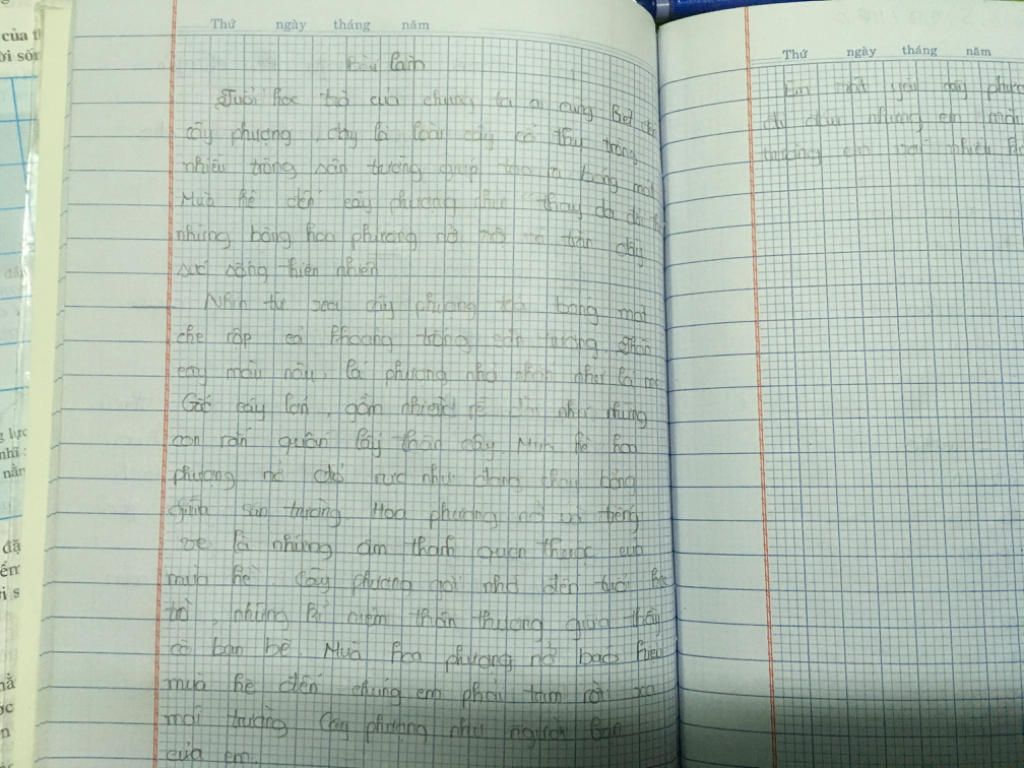 của
ời sốn
Thứ ngày tháng năm
Bài làm
Tuổi học trò của chúng ta ai cũng biết đến
cây phượng, đây là loài cây có thụ trồng
nhiều trong sân trường giúp tỏa bóng mát
Mùa hè đến cây phượng như thay da đổi
những bông hoa phượng nở tràn đầy
sức sống thiên nhiên
Nhìn từ xa cây phượng tỏa bóng mát
che rợp cả khoảng trống sân trường. Thân
cây màu nâu, lá phượng nhỏ như lá me
Gốc cây lớn, gồm nhiều rễ như những
con rắn quấn lấy thân cây. Mùa hè hoa
phượng nở đỏ rực như đang cháy bỏng
giữa sân trường Hoa phượng nở và tiếng
ve là những âm thanh quen thuộc của
mùa hè. Cây phượng gợi nhớ đến tuổi học
trò, những kỉ niệm thân thương giữa thầy
cô bạn bè. Mùa hoa phượng nở báo hiệu
mùa hè đến chúng em phải tạm rời xa
mái trường. Cây phượng như người bạn
của em.
Thứ ngày tháng năm
Em rất yêu cây phượng
đi đâu nhưng em mãi
trường em với nhiều